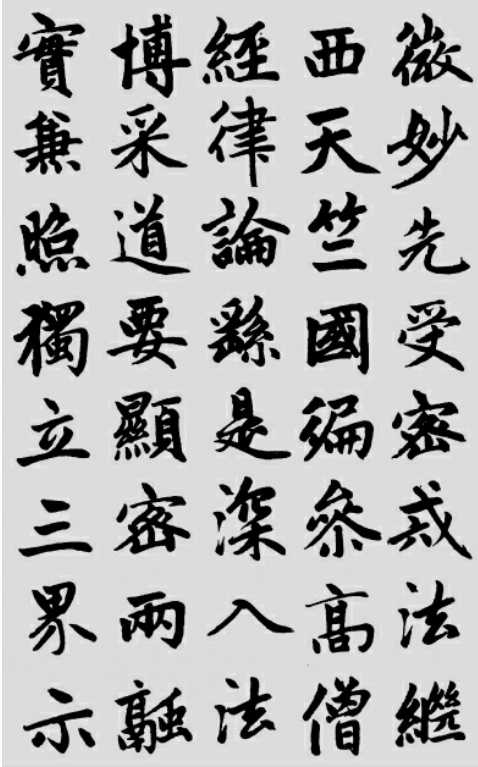 微妙先受密戒法繼
西天竺國徧叅高僧
經律論繇是深入法
博采道要顯密兩融
實兼照獨立三界示